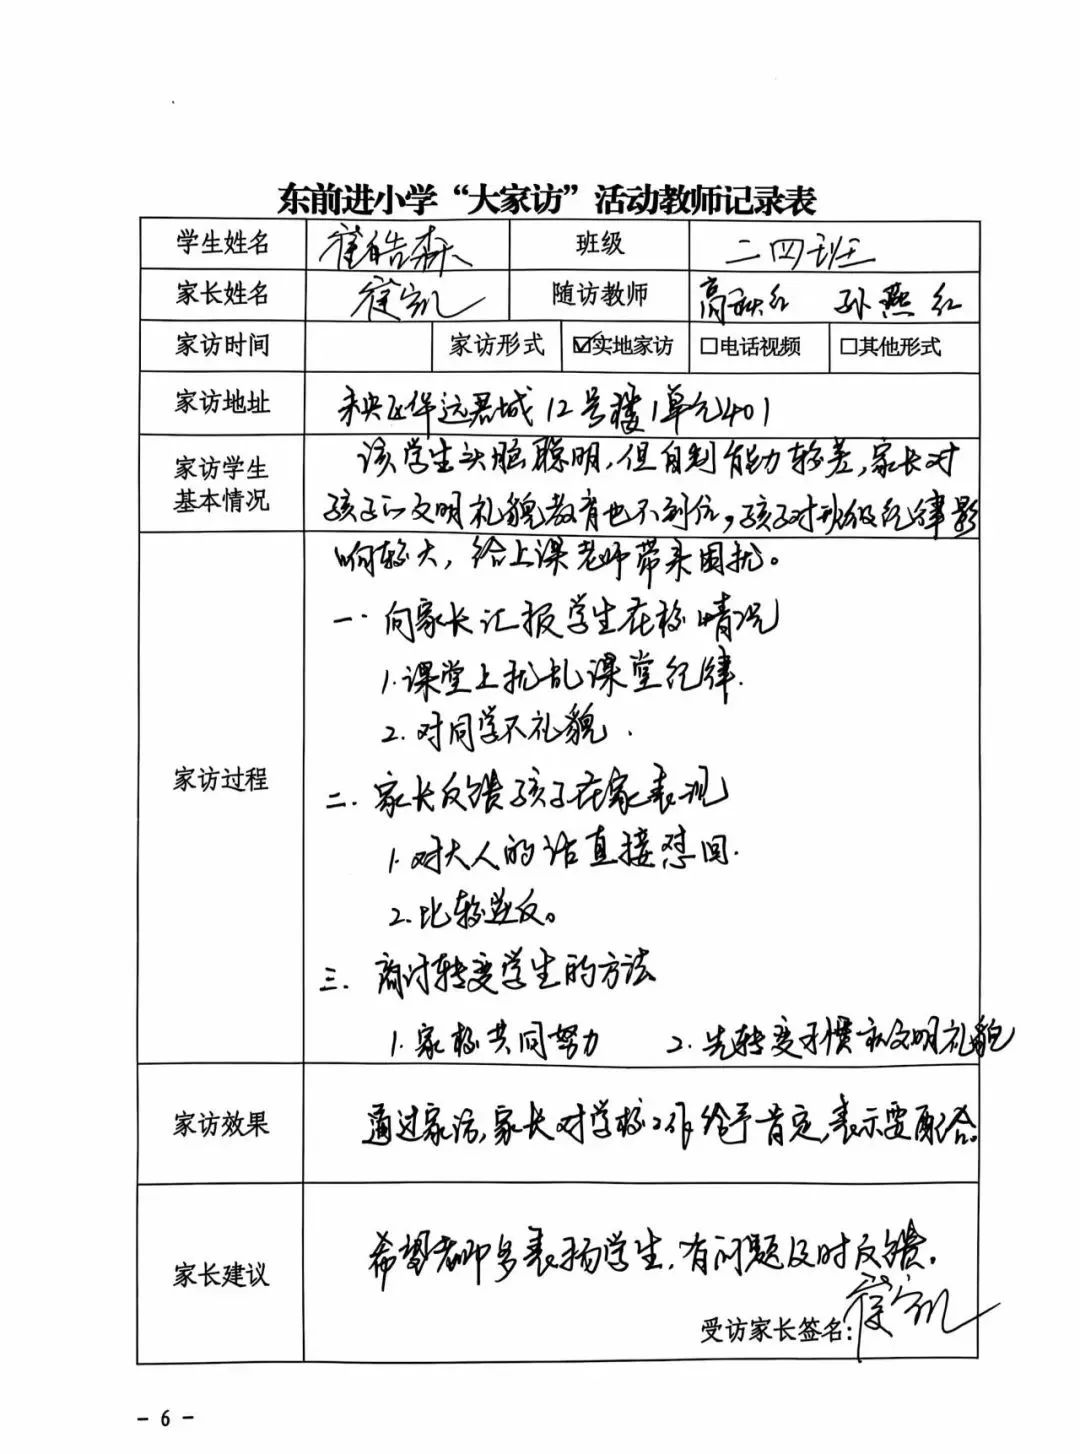 东前进小学“大家访”活动教师记录表
学生姓名 崔皓森 班级 二四班
家长姓名 崔凯 随访教师 高秋红 孙燕红
家访时间 家访形式 ☑实地家访 □电话视频 □其他形式
家访地址 未央区华远君城12号楼1单元401
家访学生
基本情况
该学生头脑聪明,但自制能力较差,家长对
孩子的文明礼貌教育也不到位,孩子对班级纪律影
响较大,给上课老师带来困扰。
家访过程
一.向家长汇报学生在校情况
1.课堂上扰乱课堂纪律.
2.对同学不礼貌.
二.家长反馈孩子在家表现
1.对大人的话直接怼回.
2.比较逆反。
三.商讨转变学生的方法
1.家校共同努力 2.先转变习惯和文明礼貌
家访效果 通过家访,家长对学校工作给予肯定,表示要配合。
家长建议 希望老师多表扬学生,有问题及时反馈.
受访家长签名:崔凯
- 6 -